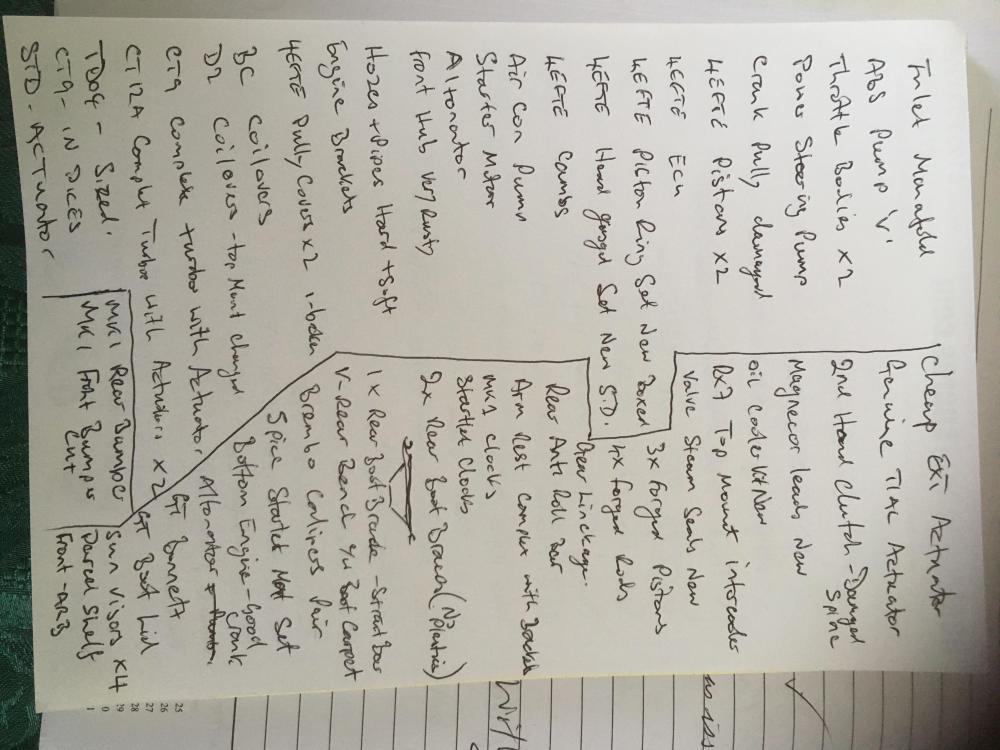 Inlet Manafold
ABS Pump 'V'
Throttle Bodies x2
Power Stering Pump
Crank Pully damaged
4EFTE Pistons x2
4EFTE Ecu
4EFTE Piston Ring Set New Boxed
4EFTE Head gasget Set New S.D.
4EFTE Cambs
Air Con Pump
Starter Motor
Altonator
front Hub very Rusty
Hozes + Pipes Hard + Soft
Engine Brackets
4EFTE Pully Covers x2 1-broken
BC Coilovers
D2 Coilovers - top Mount Changed
CT9 Complete turbo with Actuator
CT12A Complet Turbo with Actuators x2
TD04 - Sized.
CT9 - IN PICES
STD - ACTUATOR
Cheap EXT Actuator
Genuine TIAL Actuator
2nd Hand Clutch - Damaged
Spline
Magnecor leads New
Oil Cooler Kit New
RX7 Top Mount intercooler
Valve Steam Seals New
3x Forged Pistons
4x Forged Rods
Gear Linckage.
Rear Anti Roll Bar
Arm Rest Complete with Bracket
MK1 Clocks
Starlet Clocks
2x Rear Boot Braces (No Plates)
1x Rear Boot Brace - Strait Bar
V-Rear Bend 4x Boot Carpet
Brembo Calipers Pair
Spice Starlet Mat Set
Bottom Engine - Good
Crank
Altonator
GTi Bonnett
GT Boot Lid
Sun Visors x4
Parcel Shelf
Front - ARB
MK1 Rear Bumper
MK1 Front Bumper
Cut
25
26
27
28
29